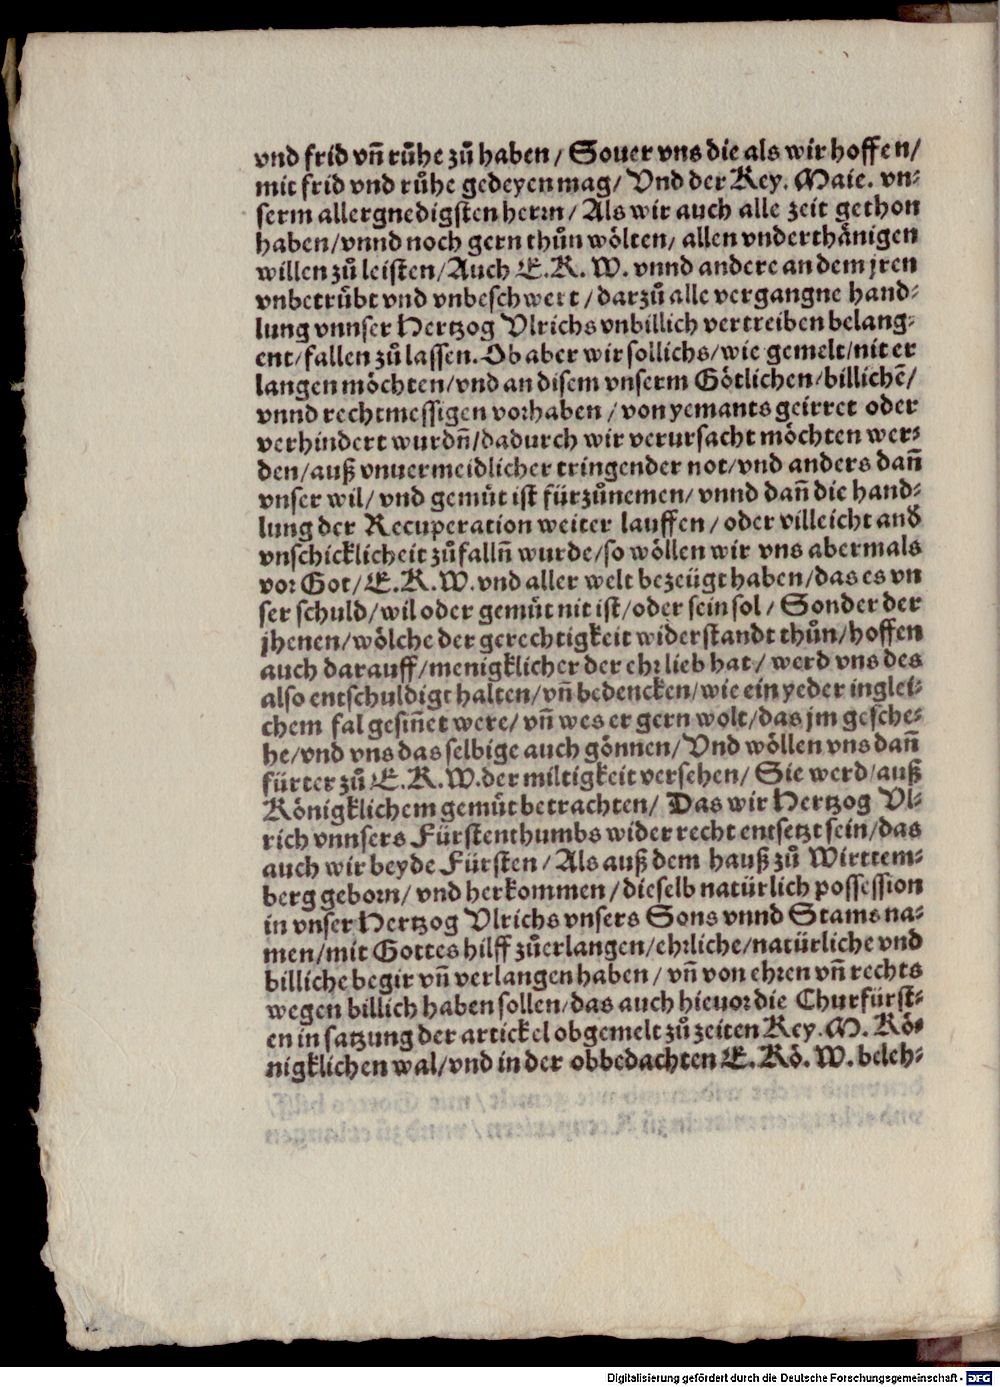 vnd frid vn̄ růhe zů haben / Souer vns die als wir hoffen/
mit frid vnd růhe gedeyen mag/ Vnd der Key. Maie. vn⸗
serm allergnedigsten herrn / Als wir auch alle zeit gethon
haben/vnnd noch gern thůn wölten/ allen vnderthänigen
willen zů leisten/Auch E.K. W. vnnd andere an dem jren
vnbetrübt vnd vnbeschwert / darzů alle vergangne hand⸗
lung vnnser Hertzog Vlrichs vnbillich vertreiben belang⸗
ent/fallen zů lassen. Ob aber wir sollichs/wie gemelt/nit er
langen möchten/vnd an disem vnserm Götlichen/billichē/
vnnd rechtmessigen vorhaben / von yemants geirret oder
verhindert wurdn̄/dadurch wir verursacht möchten wer⸗
den/auß vnuermeidlicher tringender not/vnd anders dan̄
vnser wil/ vnd gemüt ist fürzůnemen/ vnnd dan̄ die hand⸗
lung der Recuperation weiter lauffen / oder villeicht and̄
vnschicklicheit zůfalln̄ wurde/so wöllen wir vns abermals
vor Got/E.K.W.vnd aller welt bezeügt haben/das es vn
ser schuld/wil oder gemüt nit ist/oder sein sol / Sonder der
jhenen/wölche der gerechtigkeit widerstandt thůn/hoffen
auch darauff/menigklicher der ehr lieb hat/ werd vns des
also entschuldigt halten/vn̄ bedencken/wie ein yeder inglei⸗
chem fal gesin̄et were/ vn̄ wes er gern wolt/das jm gesche⸗
he/vnd vns das selbige auch gönnen/ Vnd wöllen vns dan̄
fürter zů E.K.W.der miltigkeit versehen/ Sie werd/auß
Königklichem gemüt betrachten/ Das wir Hertzog Vl⸗
rich vnnsers Fürstenthumbs wider recht entsetzt sein/das
auch wir beyde Fürsten / Als auß dem hauß zů Wirttem⸗
berg geborn/ vnd herkommen / dieselb natürlich possession
in vnser Hertzog Vlrichs vnsers Sons vnnd Stams na⸗
men/mit Gottes hilff zůerlangen/ehrliche/natürliche vnd
billiche begir vn̄ verlangen haben / vn̄ von ehren vn̄ rechts
wegen billich haben sollen/das auch hieuor die Churfürst⸗
en in satzung der artickel obgemelt zů zeiten Key.M. Kö⸗
nigklichen wal/vnd in der obbedachten E. Kö. W. beleh⸗
Digitalisierung gefördert durch die Deutsche Forschungsgemeinschaft - DFG